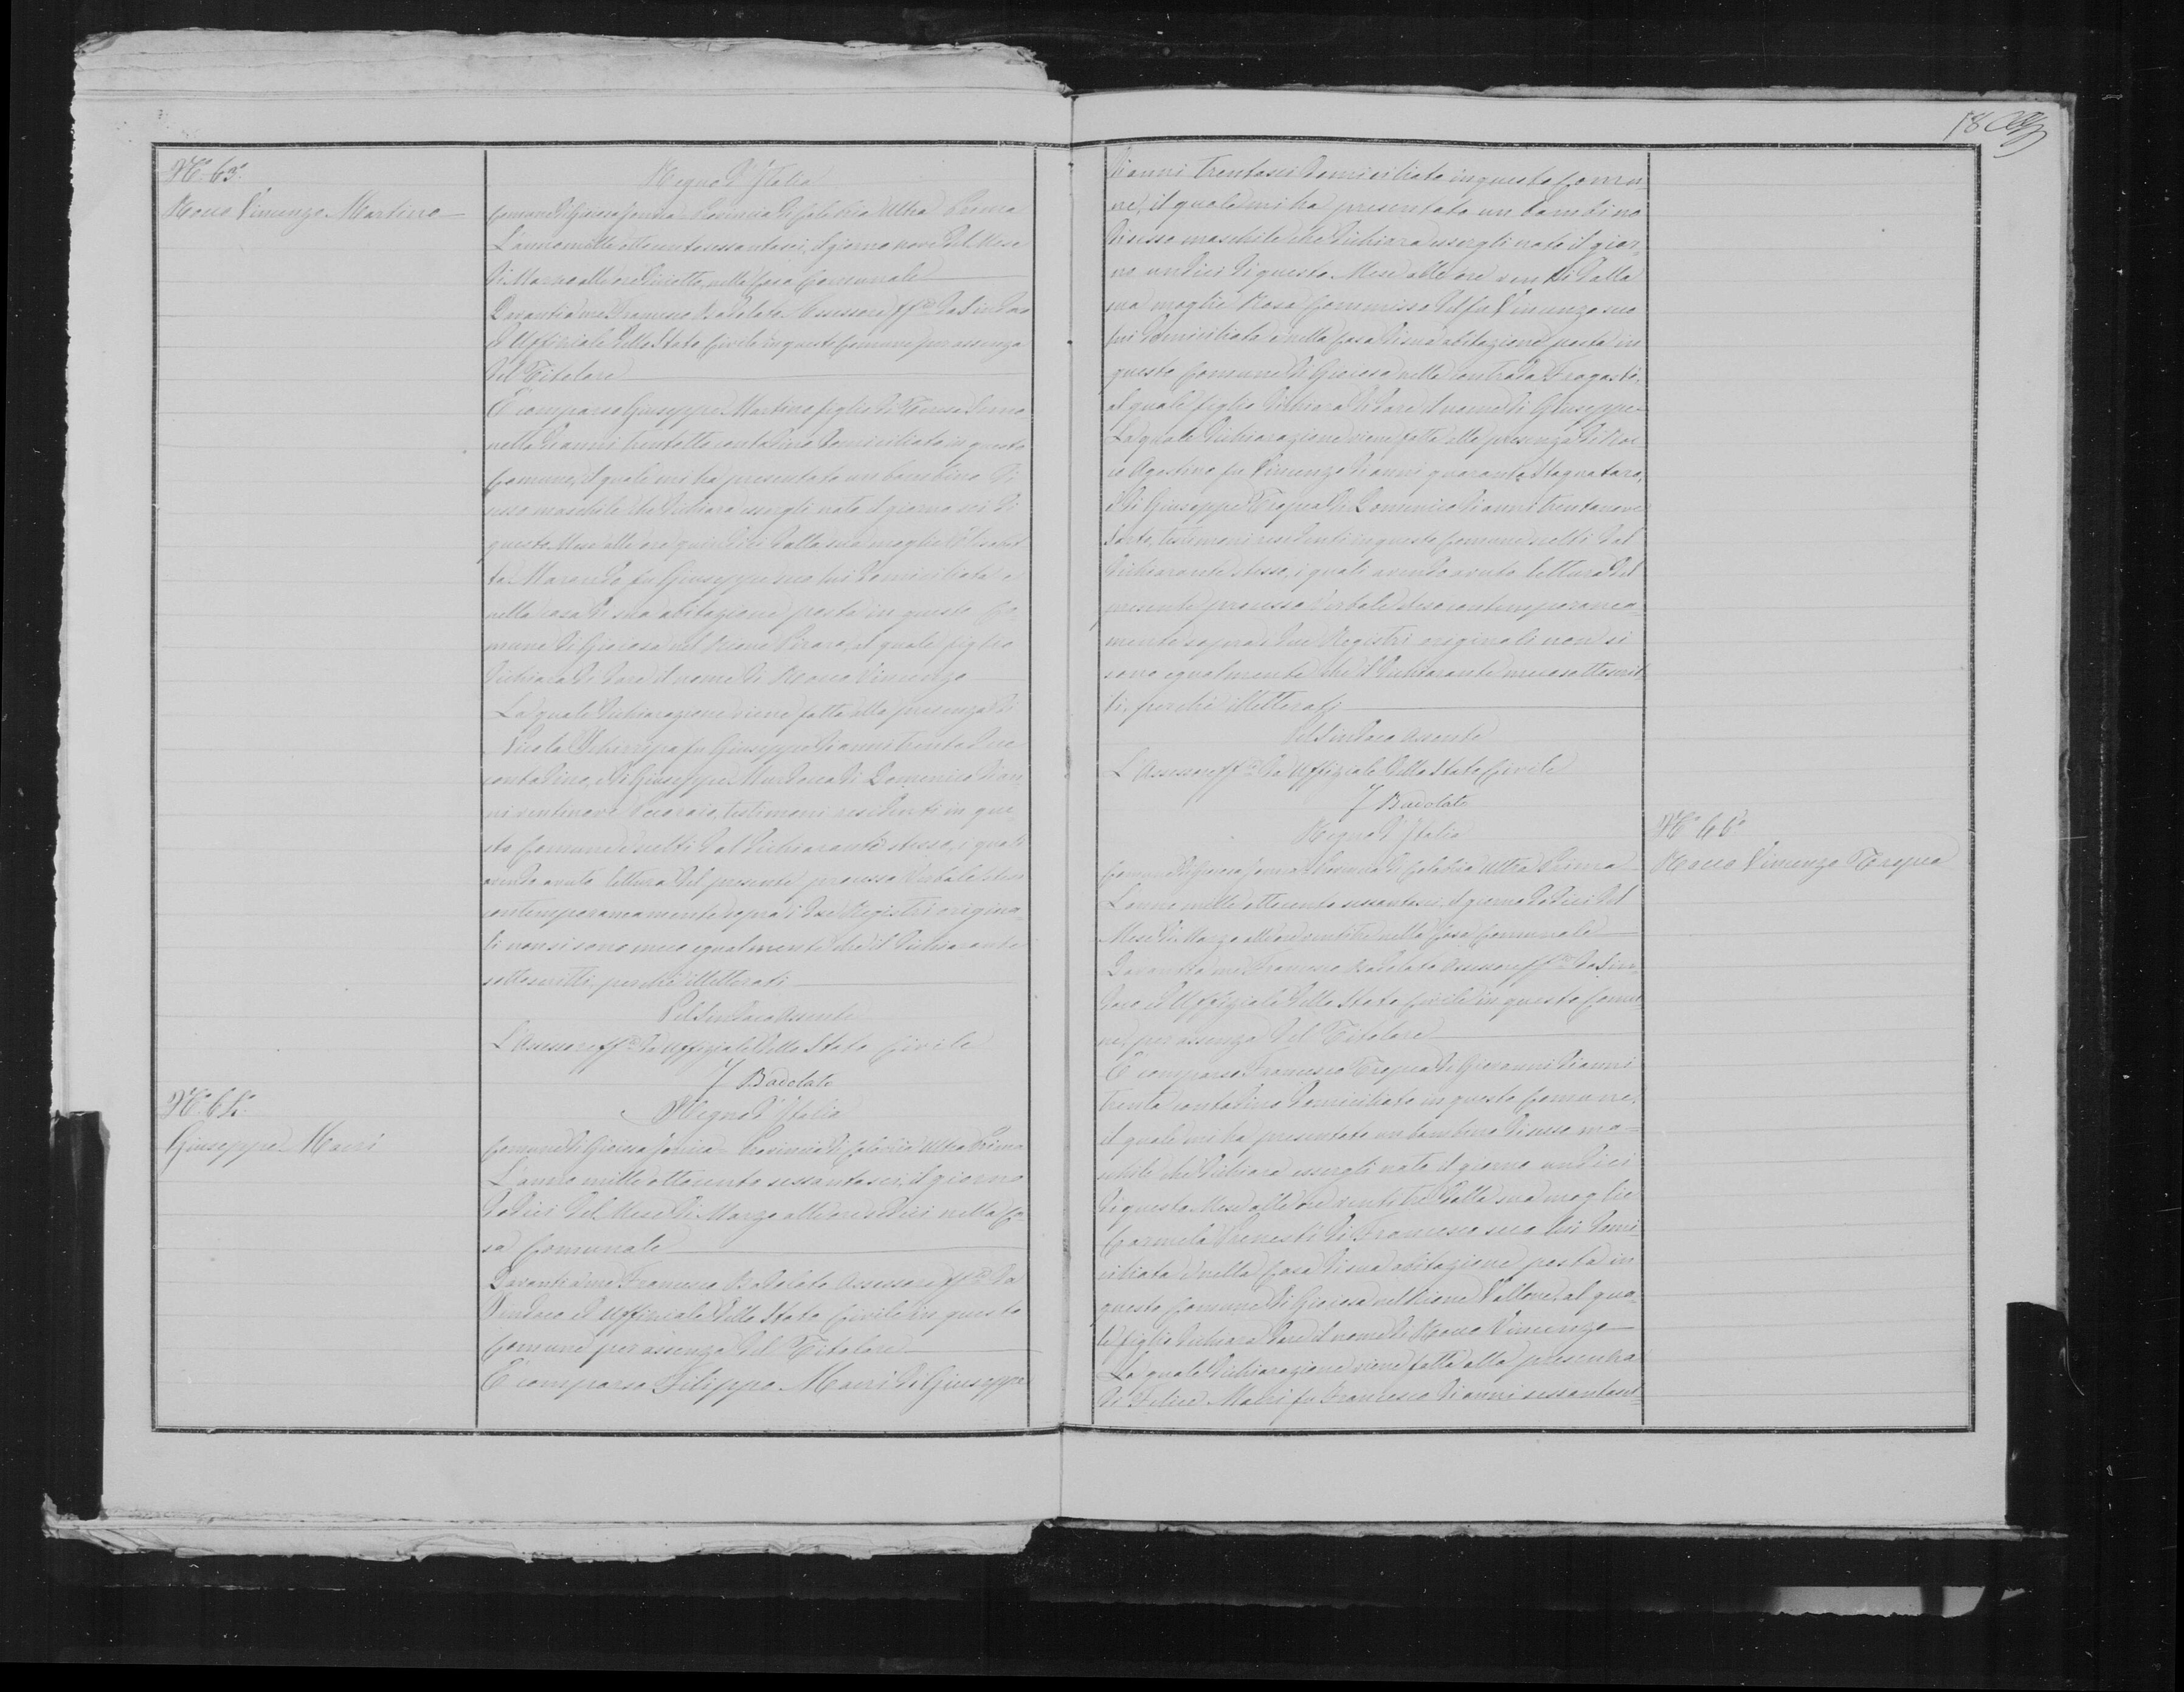 18
N.° 63.°
Rocco Vincenzo Martino
Regno d'Italia
Comune di Gioiosa Jonica Provincia di Calabria Ultra Prima
L'anno mille ottocento sessantasei, il giorno nove del Mese
di Marzo alle ore diciotto, nella Casa Comunale
Davanti a me Francesco Badolato Assessore ff.ni da Sindaco
ed Uffiziale dello Stato Civile in questo Comune per assenza
del Titolare
È comparso Giuseppe Martino figlio di Teresa
di anni trentotto contadino domiciliato in questo
Comune, il quale mi ha presentato un bambino di
sesso maschile che dichiara essergli nato il giorno sei di
questo Mese alle ore quindici dalla sua moglie Elisabet
ta Marando fu Giuseppe seco lui domiciliata e
nella casa di sua abitazione posta in questo Co-
mune di Gioiosa nel Rione al quale figlio
dichiara di dare il nome di Rocco Vincenzo
La quale dichiarazione viene fatta alla presenza di
Nicola Schirripa fu Giuseppe di anni trentadue
contadino, e di Giuseppe di Domenico di an-
ni ventinove testimoni residenti in que-
sto Comune e scelti dal dichiarante stesso, i quali
avendo avuto lettura del presente processo verbale steso
contemporaneamente sopra i due Registri origina-
li non si sono meco egualmente che il dichiarante
sottoscritti, perchè illetterati
Pel Sindaco assente
L'Assessore ff.ni da Uffiziale dello Stato Civile
F Badolato
N.° 64.°
Giuseppe Macri
Regno d'Italia
Comune di Gioiosa Jonica Provincia di Calabria Ultra Prima
L'anno mille ottocento sessantasei, il giorno
dodici del Mese di Marzo alle ore sedici nella Ca-
sa Comunale
Davanti a me Francesco Badolato Assessore ff.ni da
Sindaco ed Uffiziale dello Stato Civile in questo
Comune per assenza del Titolare
È comparso Filippo Macri di Giuseppe
di anni trentasei domiciliato in questo Comu-
ne, il quale mi ha presentato un bambino
di sesso maschile che dichiara essergli nato il gior-
no undici di questo Mese alle ore venti dalla
sua moglie Rosa Commisso del fu Vincenzo seco
lui domiciliata e nella Casa di sua abitazione posta in
questo Comune di Gioiosa nella contrada
al quale figlio dichiara di dare il nome di Giuseppe
La quale dichiarazione viene fatta alla presenza di Roc-
co Agostino fu Vincenzo di anni quaranta Stagnataro,
e di Giuseppe Tropea di Domenico di anni trentanove
Sarto, testimoni residenti in questo Comune scelti dal
dichiarante stesso, i quali avendo avuto lettura del
presente processo verbale steso contemporanea-
mente sopra i due Registri originali non si
sono egualmente che il dichiarante meco sottoscrit-
ti, perchè illetterati
Pel Sindaco assente
L'Assessore ff.ni da Uffiziale dello Stato Civile
F Badolato
N.° 66.°
Rocco Vincenzo Tropea
Regno d'Italia
Comune di Gioiosa Jonica Provincia di Calabria Ultra Prima
L'anno mille ottocento sessantasei, il giorno dodici del
Mese di Marzo alle ore ventitre nella Casa Comunale
Davanti a me Francesco Badolato Assessore ff.ni da Sin-
daco ed Uffiziale dello Stato Civile in questo Comu-
ne, per assenza del Titolare
È comparso Francesco Tropea di Giovanni di anni
trenta contadino domiciliato in questo Comune,
il quale mi ha presentato un bambino di sesso ma-
schile che dichiara essergli nato il giorno undici
di questo Mese alle ore ventitre dalla sua moglie
Carmela di Francesco seco lui domi-
ciliata e nella Casa di sua abitazione posta in
questo Comune di Gioiosa nel Rione Vallone, al qua-
le figlio dichiara dare il nome di Rocco Vincenzo
La quale dichiarazione viene fatta alla presenza
di Felice Macri fu Francesco di anni